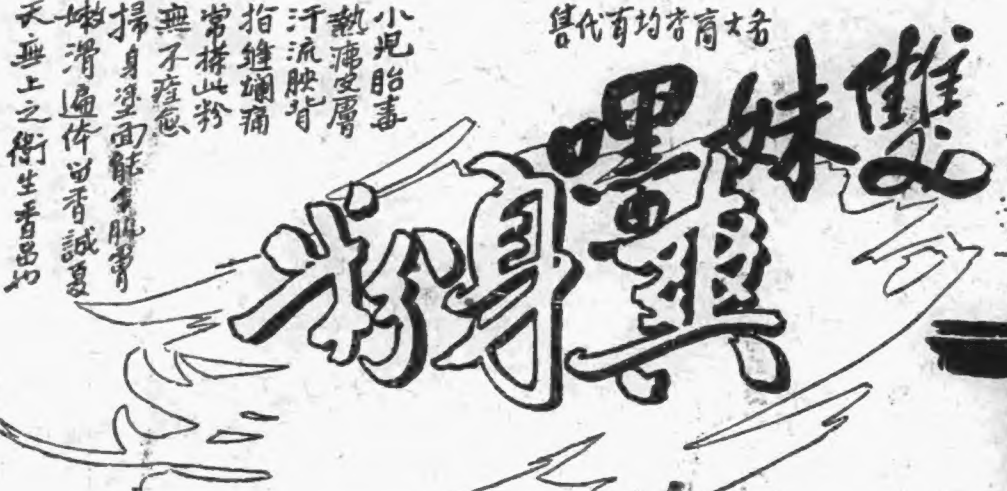 各大商店均有代售
雙妹嘿
爽身粉
小兒胎毒
熱痱皮膚
汗流脥背
指縫爛痛
常搽此粉
無不痊愈
掃身塗面能令肌膚
嫩滑遍体留香誠夏
天無上之衛生香品也